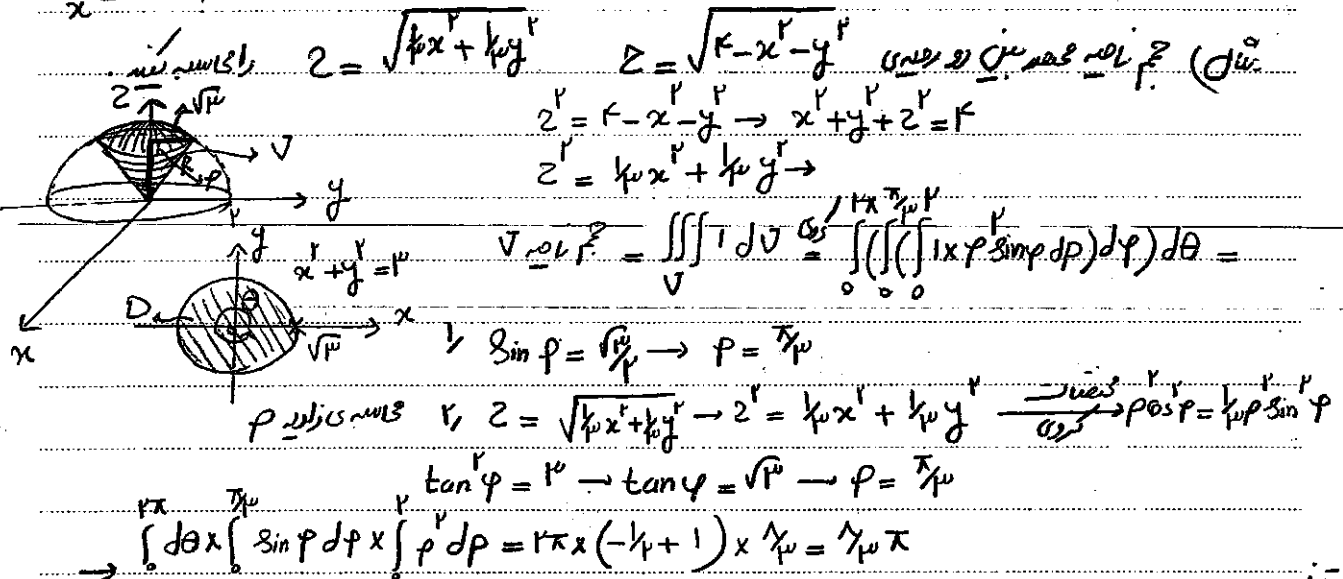 x
مثال) حجم ناحیه محصور بین دو رویه‌ی z = √(۴-x^۲-y^۲)   z = √(۱/۳x^۲+۱/۳y^۲) را محاسبه کنید.
z^۲ = ۴-x^۲-y^۲ → x^۲+y^۲+z^۲ = ۴
z^۲ = ۱/۳x^۲ + ۱/۳y^۲ →
z √۳ R φ V y ۲ x
حجم ناحیه V = ∭_V 1 dV =کروی ∫_۰^{۲π}(∫_۰^{π/۳}(∫_۰^۲ 1×ρ^۲ sinφ dρ)dφ)dθ =
y x^۲+y^۲=۳ D θ x √۳
۱) Sin φ = √۳/۲ → φ = π/۳
محاسبه‌ی زاویه φ ۲) z = √(۱/۳x^۲+۱/۳y^۲) → z^۲ = ۱/۳x^۲ + ۱/۳y^۲ مختصات کروی → ρ^۲cos^۲φ = ۱/۳ρ^۲ sin^۲φ
tan^۲φ = ۳ → tanφ = √۳ → φ = π/۳
→ ∫_۰^{۲π} dθ × ∫_۰^{π/۳} sin φ dφ × ∫_۰^۲ ρ^۲ dρ = ۲π × (-۱/۲ + 1) × ۸/۳ = ۸/۳ π